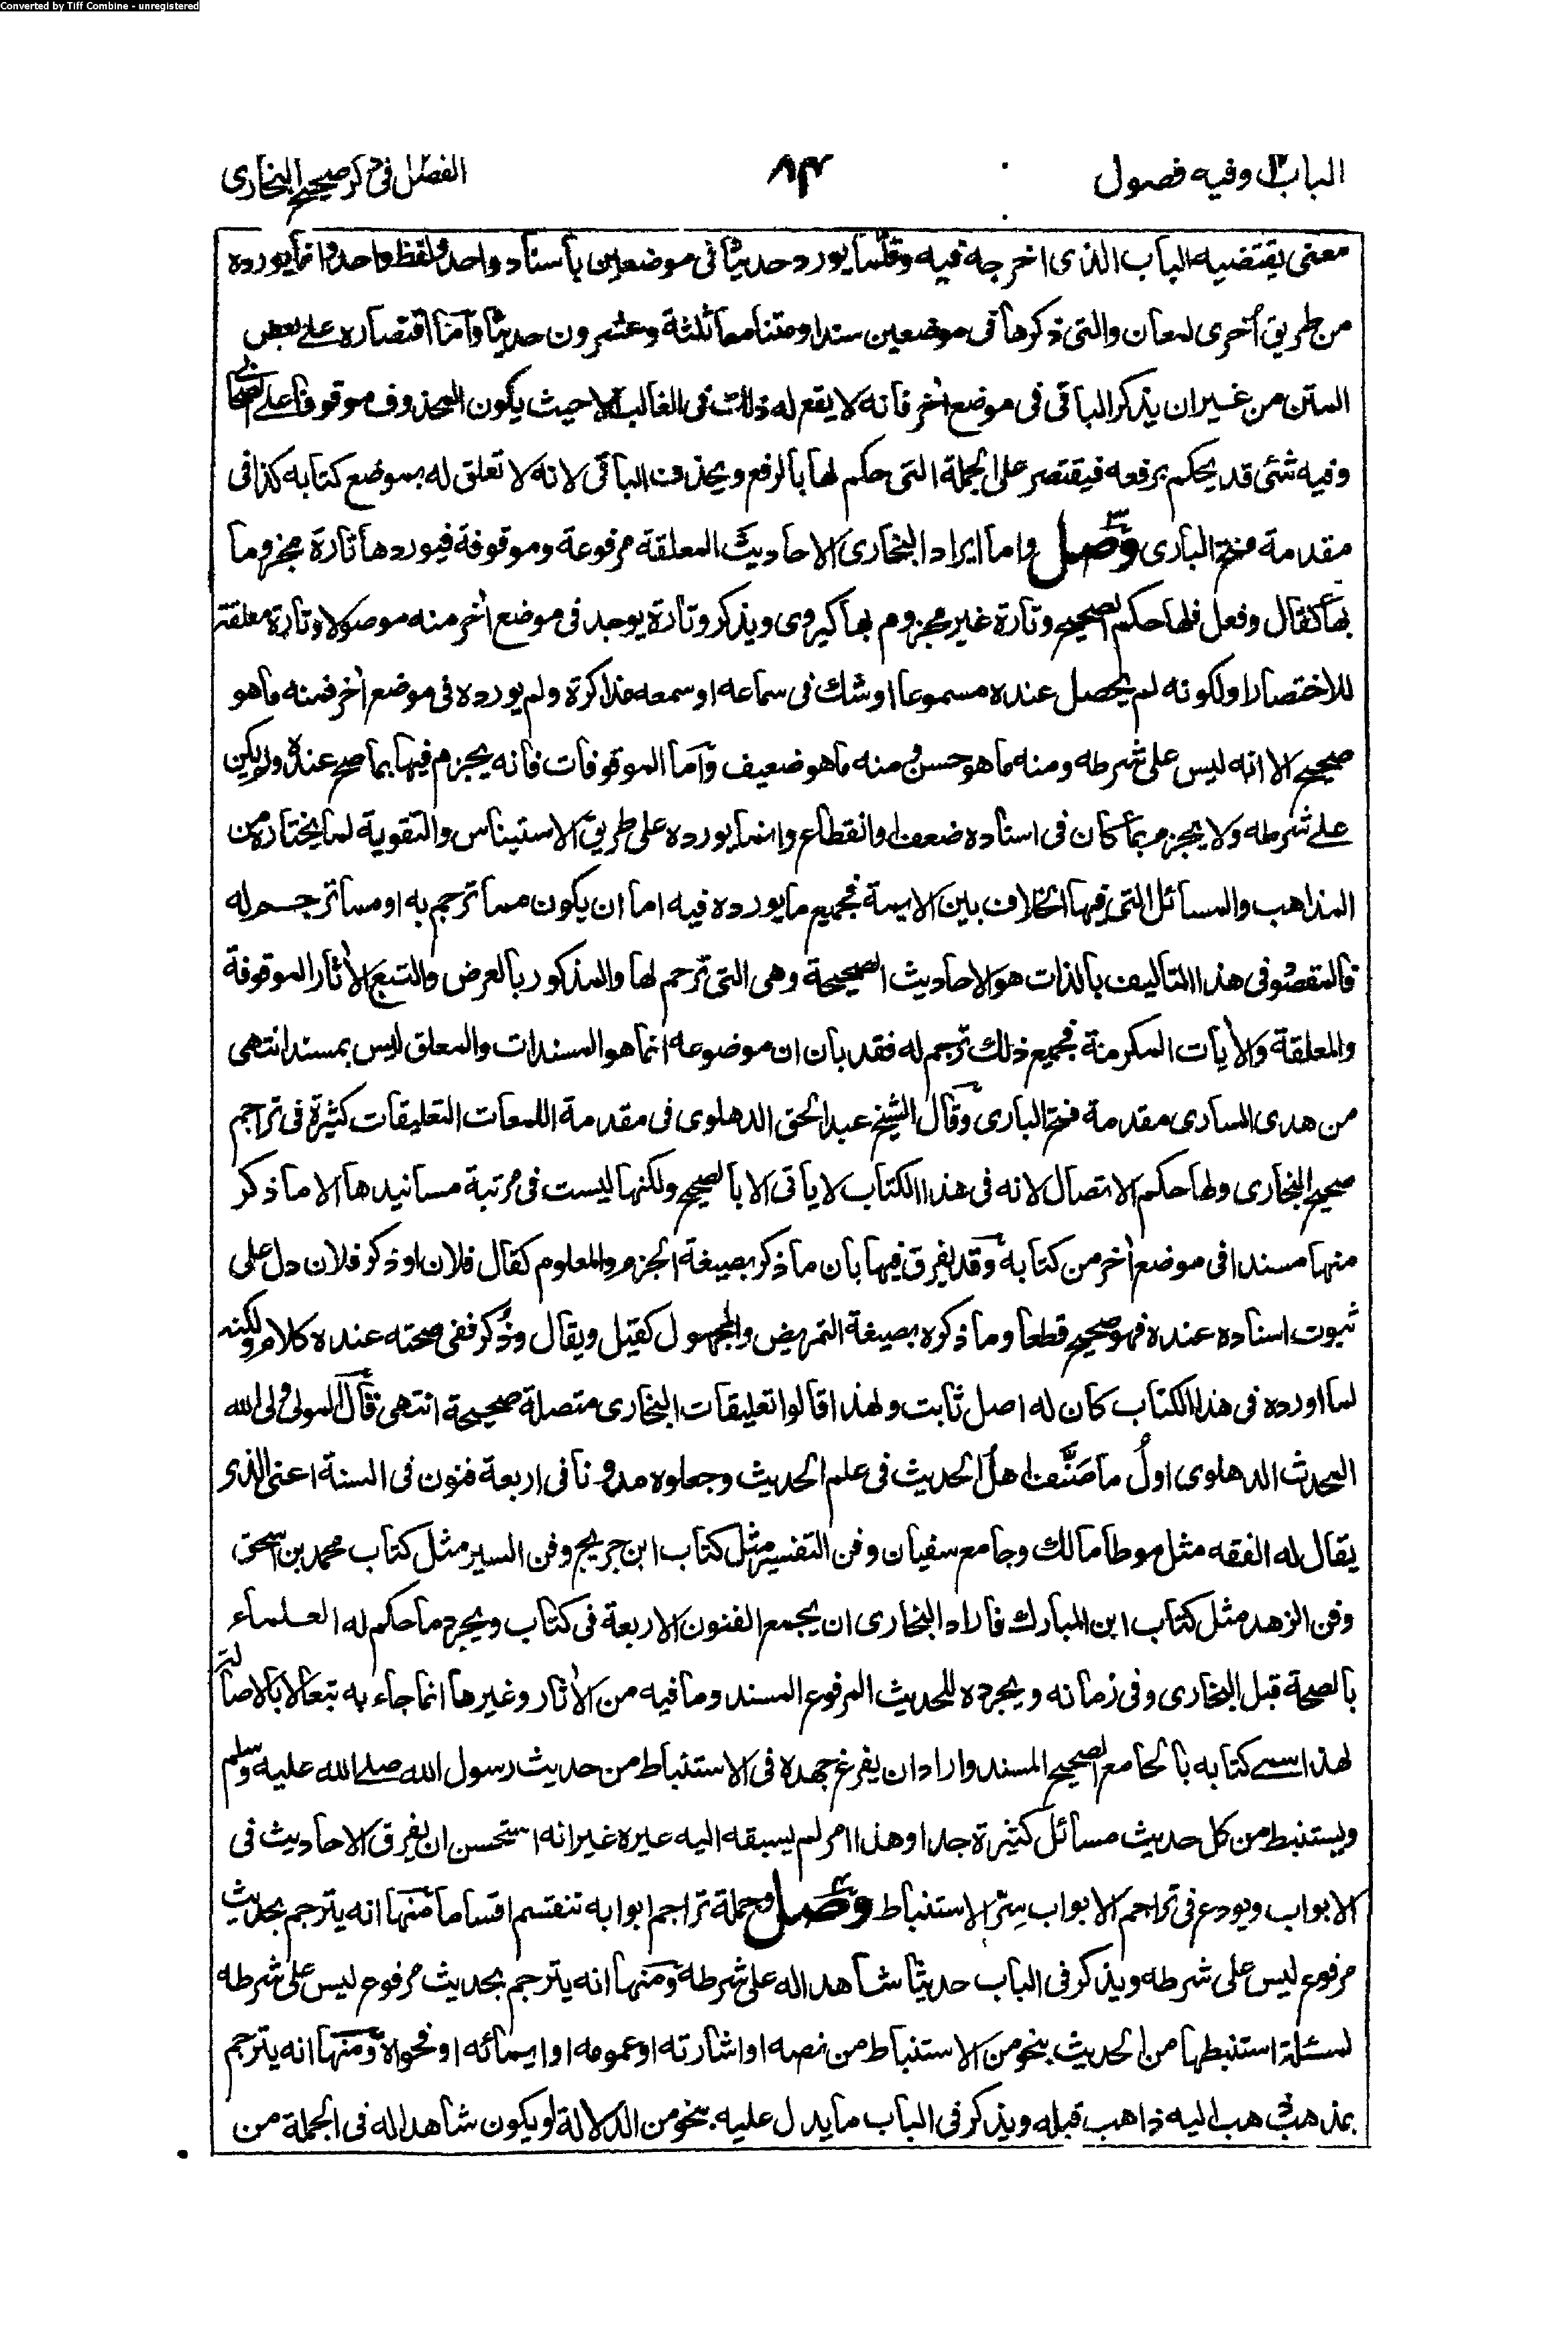 Converted by Tiff Combine - unregistered
الباب وفيه فصول
٨٣
الفصل فى ذكر صحيح البخارى
معنى يقتضيه الباب الذى اخرجه فيه وقلما يورد حديثا فى موضعين باسناد واحد ولفظ واحد وانما يورده
من طريق أخرى لمعان والتى ذكرها فى موضعين سندا ومتنا معا ثلثة وعشرون حديثا وآما اقتصاره على بعض
المتن من غير ان يذكر الباقى فى موضع أخر فانه لا يقع له ذلك فى الغالب الا حيث يكون المحذوف موقوفا على الصحابى
وفيه شئ قد يحكم برفعه فيقتصر على الجملة التى حكم لها بالرفع ويحذف الباقى لانه لا تعلق له بموضع كتابه كذا فى
مقدمة فتح البارى وصل واما ايراد البخارى الاحاديث المعلقة مرفوعة وموقوفة فيوردها تارة مجزوما
بها كقال وفعل فلها حكم الصحيح وتارة غير مجزوم بها كيروى ويذكر وتارة يوجد فى موضع أخر منه موصولا وتارة معلقة
للاختصار او لكونه لم يحصل عنده مسموعا او شك فى سماعه او سمعه مذاكرة ولم يورده فى موضع أخر فمنه ما هو
صحيح الا انه ليس على شرطه ومنه ما هو حسن ومنه ما هو ضعيف وآما الموقوفات فانه يجزم فيها بما صح عنده ولو لم يكن
على شرطه ولا يجزم بما كان فى اسناده ضعف او انقطاع وانما يورده على طريق الاستيناس والتقوية لما يختاره من
المذاهب والمسائل التى فيها الخلاف بين الايمة فجميع ما يورده فيه اما ان يكون مما ترجم به او مما ترجم له
فالمقصود فى هذا التاليف بالذات هو الاحاديث الصحيحة وهى التى ترجم لها والمذكور بالعرض والتبع الأثار الموقوفة
والمعلقة والأيات المكرمة فجميع ذلك ترجم له فقد بان ان موضوعه انما هو المسندات والمعلق ليس بمسند انتهى
من هدى السارى مقدمة فتح البارى وقال الشيخ عبد الحق الدهلوى فى مقدمة اللمعات التعليقات كثيرة فى تراجم
صحيح البخارى ولها حكم الاتصال لانه فى هذا الكتاب لا ياتى الا بالصحيح ولكنها ليست فى مرتبة مسانيدها الا ما ذكر
منها مسندا فى موضع أخر من كتابه وقد يفرق فيها بان ما ذكر بصيغة الجزم والمعلوم كقال فلان او ذكر فلان دل على
ثبوت اسناده عنده فهو صحيح قطعا وما ذكره بصيغة التمريض والمجهول كقيل ويقال وذُكر ففى صحته عنده كلام ولكنه
لما اورده فى هذا الكتاب كان له اصل ثابت ولهذا قالوا تعليقات البخارى متصلة صحيحة انتهى قال المولى ولى الله
المحدث الدهلوى اولُ ما صَنَّف اهلُ الحديث فى علم الحديث وجعلوه مدونا فى اربعة فنون فى السنة اعنى الذى
يقال له الفقه مثل موطا مالك وجامع سفيان وفن التفسير مثل كتاب ابن جريج وفن السير مثل كتاب محمد بن اسحق
وفن الزهد مثل كتاب ابن المبارك فاراد البخارى ان يجمع الفنون الاربعة فى كتاب ويجرد ما حكم له العلماء
بالصحة قبل البخارى وفى زمانه ويجرده للحديث المرفوع المسند وما فيه من الأثار وغيرها انما جاء به تبعا لا بالاصالة
لهذا سمى كتابه بالجامع الصحيح المسند واراد ان يفرغ جهده فى الاستنباط من حديث رسول الله صلى الله عليه وسلم
ويستنبط من كل حديث مسائل كثيرة جدا وهذا امر لم يسبقه اليه غيره غير انه استحسن ان يفرق الاحاديث فى
الابواب ويودع فى تراجم الابواب سِرّ الاستنباط وصل وجملة تراجم ابوابه تنقسم اقساما منها انه يترجم بحديث
مرفوع ليس على شرطه ويذكر فى الباب حديثا شاهدا له على شرطه ومنها انه يترجم بحديث مرفوع ليس على شرطه
لمسئلة استنبطها من الحديث بنحو من الاستنباط من نصه او اشارته او عمومه او ايمائه او فحواه ومنها انه يترجم
بمذهب ذهب اليه ذاهب قبله ويذكر فى الباب ما يدل عليه بنحو من الدلالة او يكون شاهدا له فى الجملة من